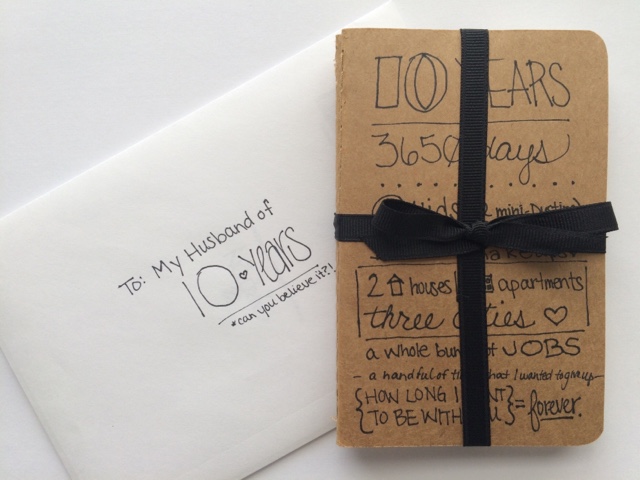 To: My Husband of
10 Years
*can you believe it?!
10 YEARS
3650 days
mini-
2 houses apartments
three cities
a whole bunch of JOBS
a handful of that I wanted to give up
{HOW LONG I WANT
TO BE WITH YOU} = forever.